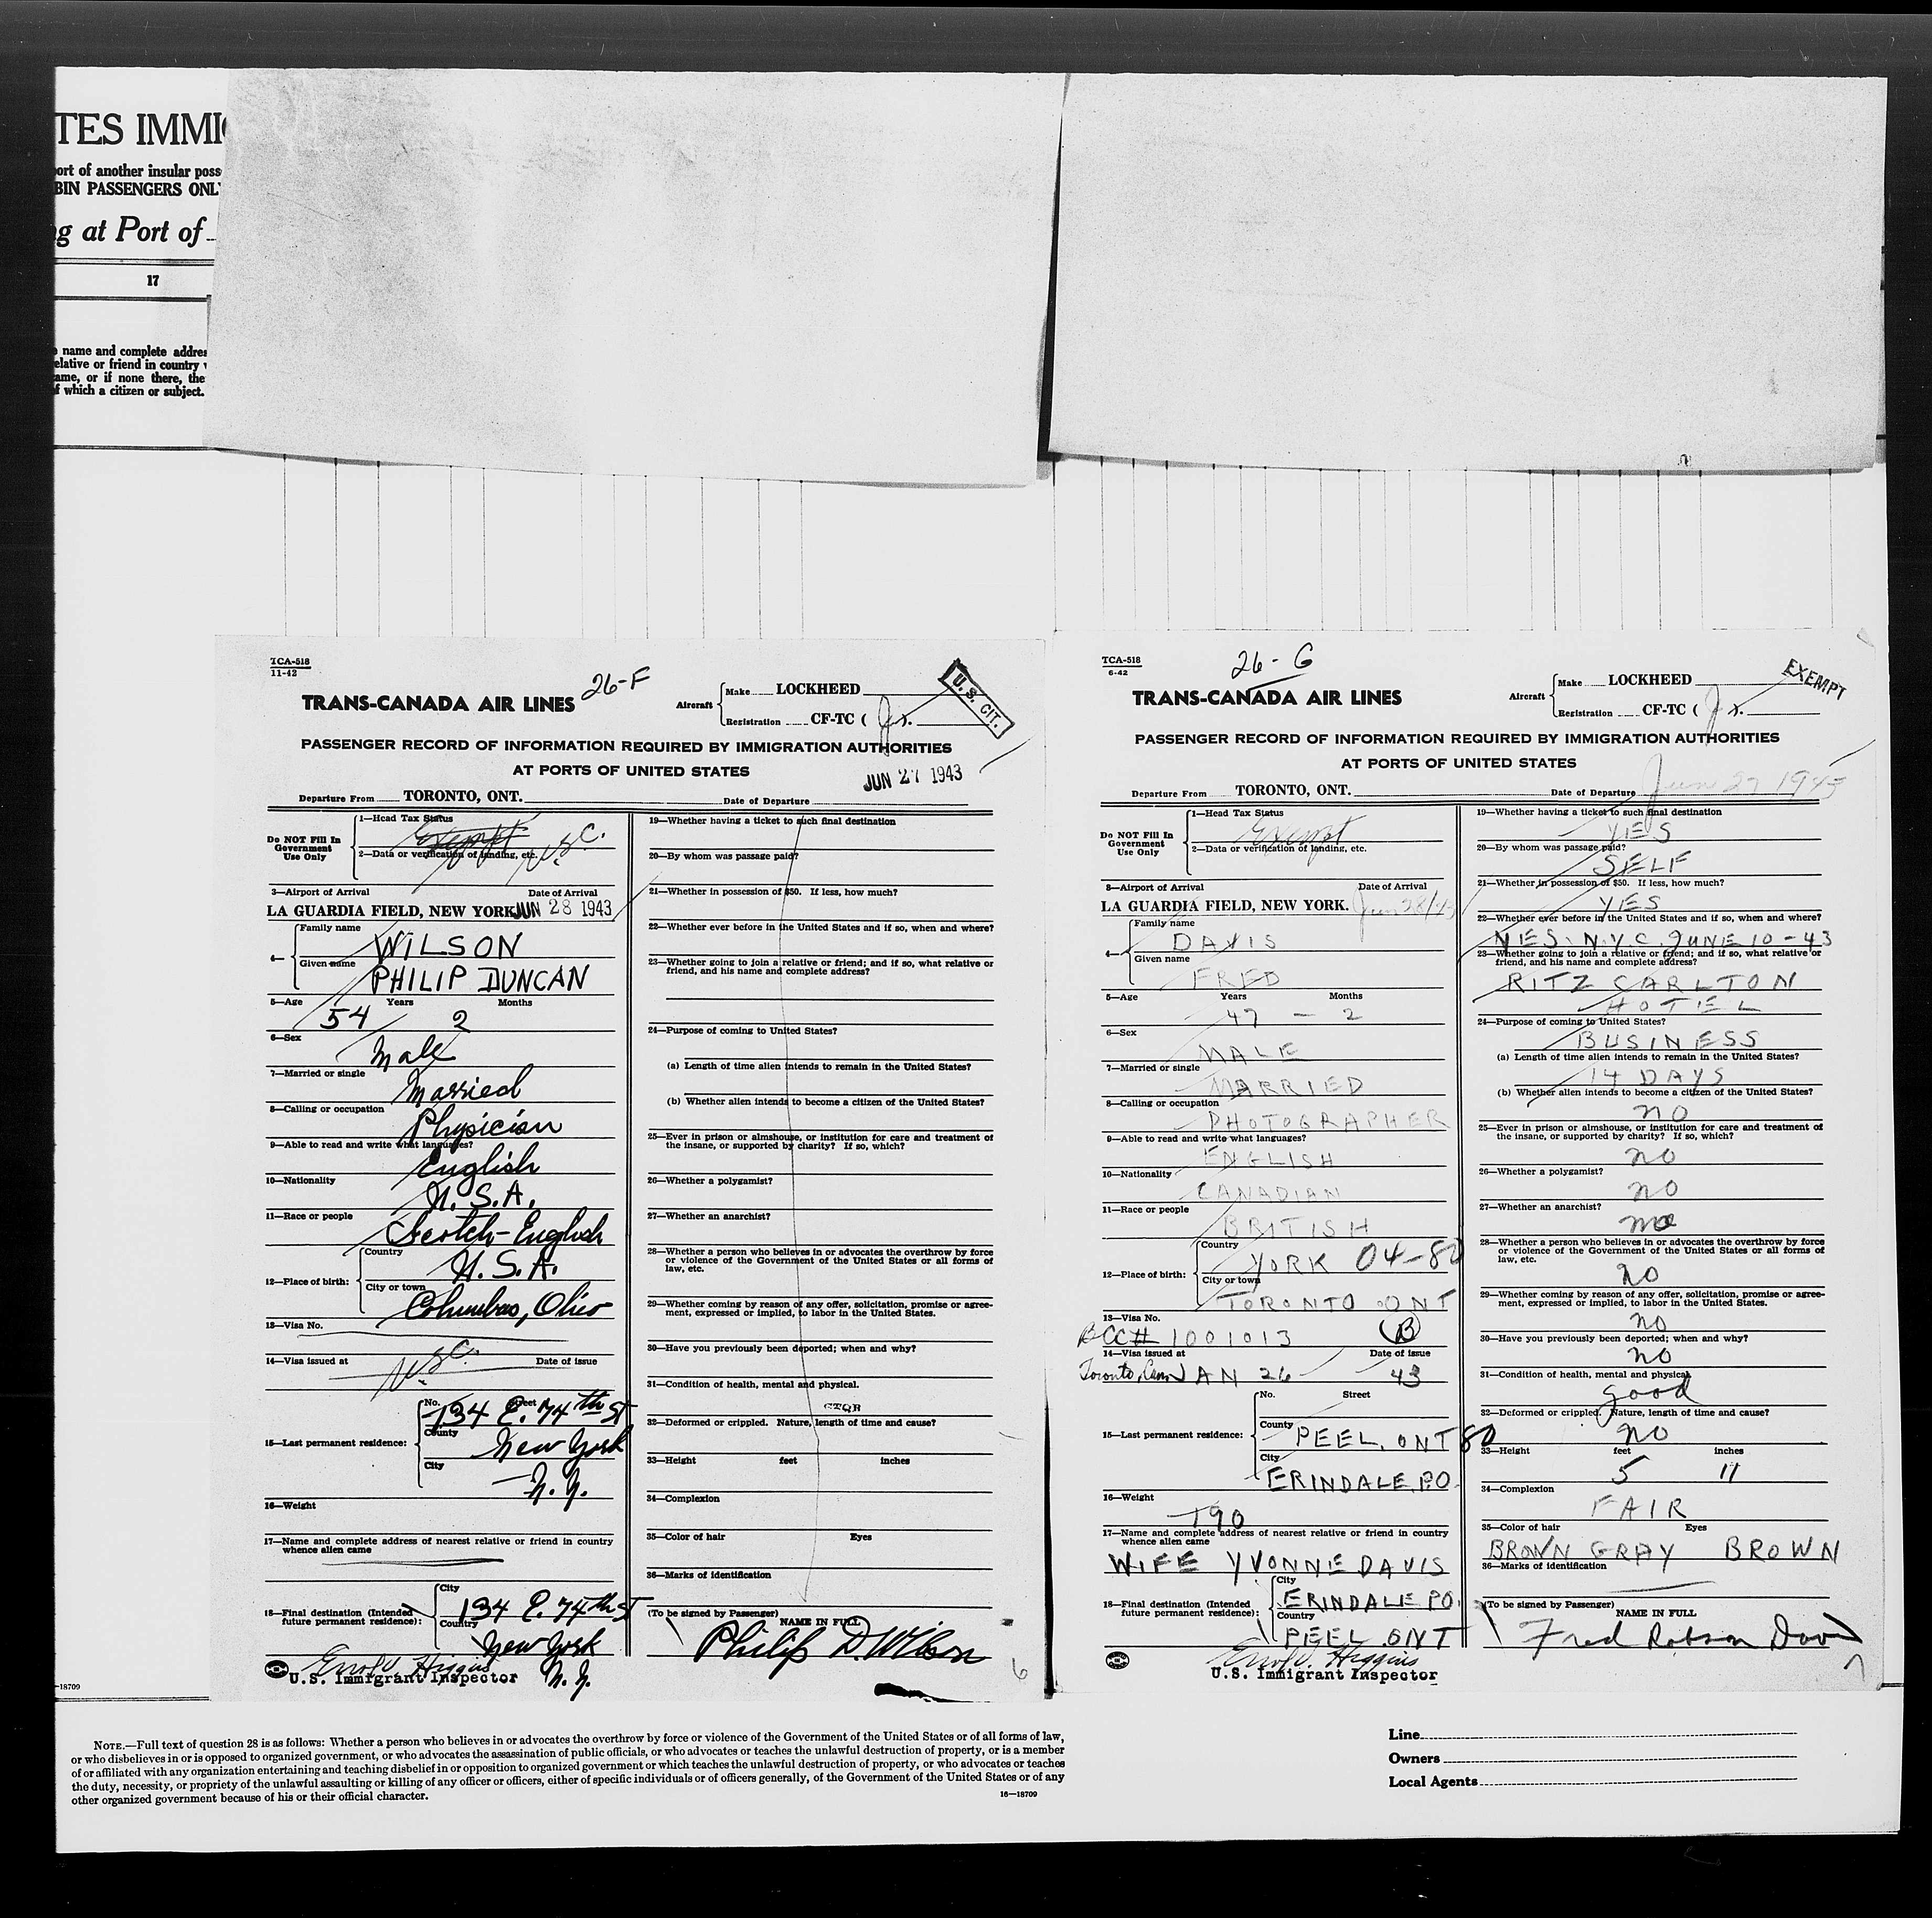 TES IMMI
ort of another insular poss
BIN PASSENGERS ONL
g at Port of
17
name and complete addre
elative or friend in country
ame, or if none there, the
f which a citizen or subject.
TCA-518
11-42
26-F
TRANS-CANADA AIR LINES
Aircraft
Make LOCKHEED
Registration CF-TC (
U. S. CIT.
PASSENGER RECORD OF INFORMATION REQUIRED BY IMMIGRATION AUTHORITIES
AT PORTS OF UNITED STATES
JUN 27 1943
Departure From TORONTO, ONT.
Date of Departure
Do NOT Fill In
Government
Use Only
1—Head Tax Status
Exempt
2—Data or verification of landing, etc.
USC.
3—Airport of Arrival Date of Arrival
LA GUARDIA FIELD, NEW YORK JUN 28 1943
4— Family name
WILSON
Given name
PHILIP DUNCAN
5—Age Years Months
54 2
6—Sex
Male
7—Married or single
Married
8—Calling or occupation
Physician
9—Able to read and write what languages?
English
10—Nationality
U.S.A.
11—Race or people
Scotch-English
12—Place of birth:
Country
U.S.A.
City or town
Columbus, Ohio
13—Visa No.
14—Visa issued at Date of issue
USC.
15—Last permanent residence:
No. Street
134 E. 74th St
County
New York
City
N.Y.
16—Weight
17—Name and complete address of nearest relative or friend in country
whence alien came
18—Final destination (Intended
future permanent residence):
City
134 E. 74th St
Country
New York
N.Y.
Higgins
U.S. Immigrant Inspector
19—Whether having a ticket to such final destination
20—By whom was passage paid?
21—Whether in possession of $50. If less, how much?
22—Whether ever before in the United States and if so, when and where?
23—Whether going to join a relative or friend; and if so, what relative or
friend, and his name and complete address?
24—Purpose of coming to United States?
(a) Length of time alien intends to remain in the United States?
(b) Whether alien intends to become a citizen of the United States?
25—Ever in prison or almshouse, or institution for care and treatment of
the insane, or supported by charity? If so, which?
26—Whether a polygamist?
27—Whether an anarchist?
28—Whether a person who believes in or advocates the overthrow by force
or violence of the Government of the United States or all forms of
law, etc.
29—Whether coming by reason of any offer, solicitation, promise or agree-
ment, expressed or implied, to labor in the United States.
30—Have you previously been deported; when and why?
31—Condition of health, mental and physical.
32—Deformed or crippled. Nature, length of time and cause?
33—Height feet inches
34—Complexion
35—Color of hair Eyes
36—Marks of identification
(To be signed by Passenger)
NAME IN FULL
Philip D. Wilson
6
TCA-518
6-42
26-G
TRANS-CANADA AIR LINES
Aircraft
Make LOCKHEED
Registration CF-TC (
EXEMPT
PASSENGER RECORD OF INFORMATION REQUIRED BY IMMIGRATION AUTHORITIES
AT PORTS OF UNITED STATES
Departure From TORONTO, ONT.
Date of Departure Jun 27 1943
Do NOT Fill In
Government
Use Only
1—Head Tax Status
Exempt
2—Data or verification of landing, etc.
3—Airport of Arrival Date of Arrival
LA GUARDIA FIELD, NEW YORK. Jun 28/43
4— Family name
DAVIS
Given name
FRED
5—Age Years Months
47 — 2
6—Sex
MALE
7—Married or single
MARRIED
8—Calling or occupation
PHOTOGRAPHER
9—Able to read and write what languages?
ENGLISH
10—Nationality
CANADIAN
11—Race or people
BRITISH
12—Place of birth:
Country
YORK 04-80
City or town
TORONTO ONT
13—Visa No.
BCC# 1001013 B
14—Visa issued at Date of issue
Toronto, Can JAN 26 43
15—Last permanent residence:
No. Street
County
PEEL, ONT 80
City
ERINDALE P.O.
16—Weight
190
17—Name and complete address of nearest relative or friend in country
whence alien came
WIFE YVONNE DAVIS
18—Final destination (Intended
future permanent residence):
City
ERINDALE PO.
Country
PEEL ONT
Higgins
U.S. Immigrant Inspector
19—Whether having a ticket to such final destination
YES
20—By whom was passage paid?
SELF
21—Whether in possession of $50. If less, how much?
YES
22—Whether ever before in the United States and if so, when and where?
YES N.Y.C. JUNE 10-43
23—Whether going to join a relative or friend; and if so, what relative or
friend, and his name and complete address?
RITZ CARLTON
HOTEL
24—Purpose of coming to United States?
BUSINESS
(a) Length of time alien intends to remain in the United States?
14 DAYS
(b) Whether alien intends to become a citizen of the United States?
no
25—Ever in prison or almshouse, or institution for care and treatment of
the insane, or supported by charity? If so, which?
no
26—Whether a polygamist?
no
27—Whether an anarchist?
no
28—Whether a person who believes in or advocates the overthrow by force
or violence of the Government of the United States or all forms of
law, etc.
no
29—Whether coming by reason of any offer, solicitation, promise or agree-
ment, expressed or implied, to labor in the United States.
no
30—Have you previously been deported; when and why?
no
31—Condition of health, mental and physical.
good
32—Deformed or crippled. Nature, length of time and cause?
no
33—Height feet inches
5 11
34—Complexion
FAIR
35—Color of hair Eyes
BROWN GRAY BROWN
36—Marks of identification
(To be signed by Passenger)
NAME IN FULL
Fred Robson Davis
7
—18709
NOTE.—Full text of question 28 is as follows: Whether a person who believes in or advocates the overthrow by force or violence of the Government of the United States or of all forms of law,
or who disbelieves in or is opposed to organized government, or who advocates the assassination of public officials, or who advocates or teaches the unlawful destruction of property, or is a member
of or affiliated with any organization entertaining and teaching disbelief in or opposition to organized government or which teaches the unlawful destruction of property, or who advocates or teaches
the duty, necessity, or propriety of the unlawful assaulting or killing of any officer or officers, either of specific individuals or of officers generally, of the Government of the United States or of any
other organized government because of his or their official character.
16—18709
Line
Owners
Local Agents